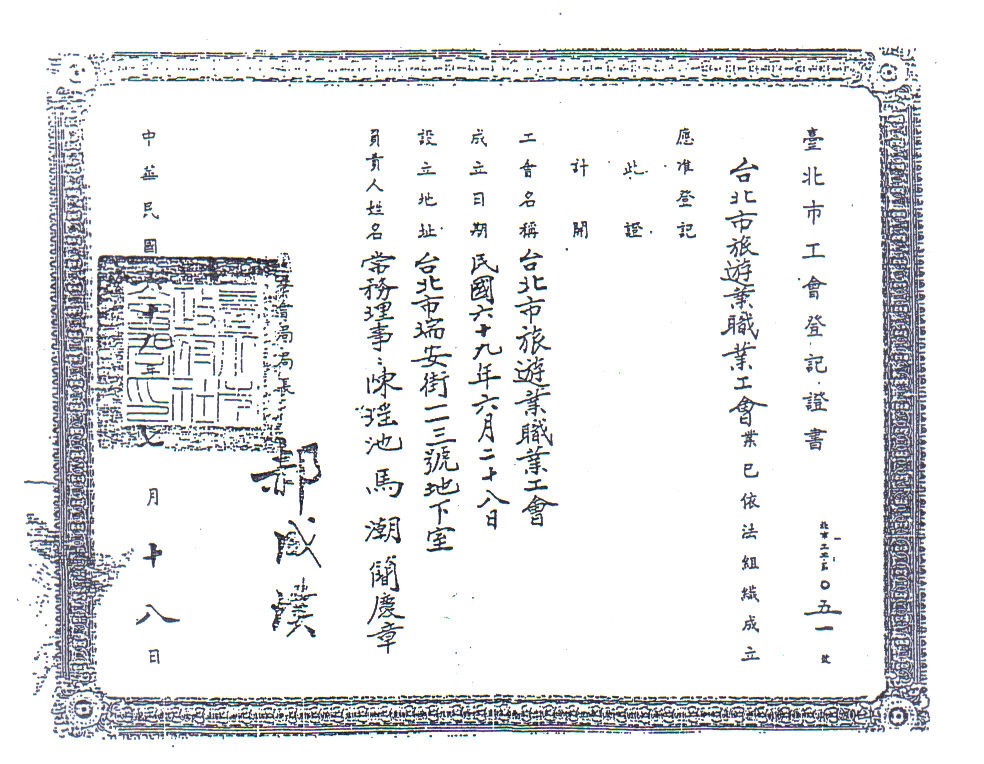 臺北市工會登記證書
北市工五字〇五一號
台北市旅遊業職業工會業已依法組織成立
應准登記
此證
計開
工會名稱台北市旅遊業職業工會
成立日期民國六十九年六月二十八日
設立地址台北市瑞安街一二三號地下室
負責人姓名常務理事:陳瑶池 馬潮 簡慶章
局局長郝成璞
中華民國六十九年七月十八日